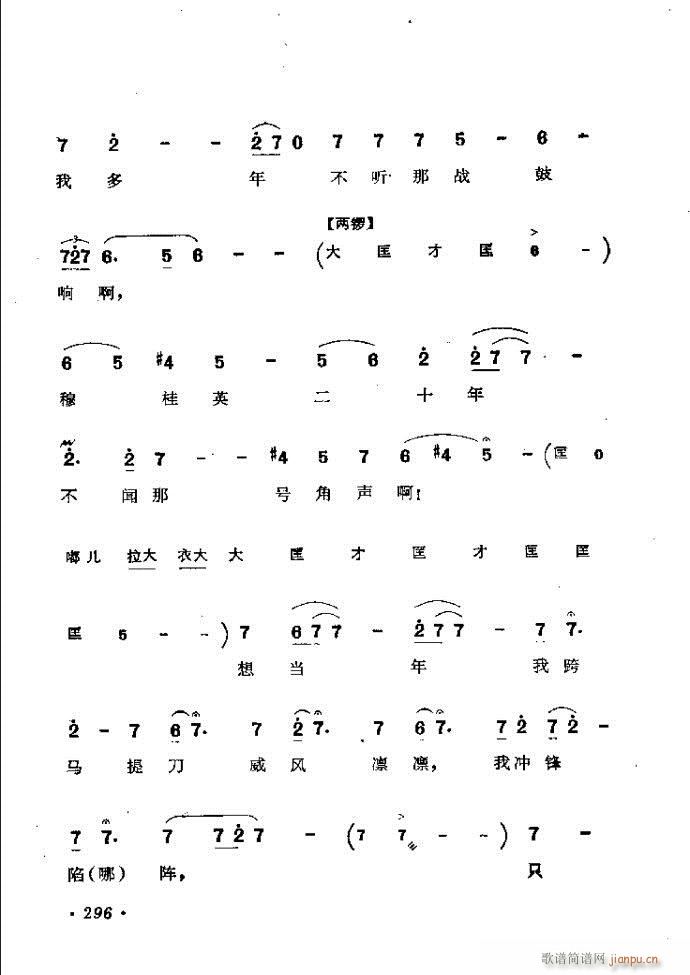 7 2 - - 2 7 0 7 7 7 5 - 6 -
我多 年 不听那战 鼓
【两锣】
727 6. 5 6 - - (大 匡 才 匡 6 -)
响啊,
6 5 #4 5 - 5 6 2 2 7 7 -
穆 桂英 二 十年
2. 2 7 - - #4 5 7 6 #4 5 - (匡 0
不 闻那 号角声啊!
嘟儿 拉大 衣大 大 匡 才 匡 才 匡 匡
匡 5 - -) 7 6 7 7 - 2 7 7 - 7 7.
想当 年 我跨
2 - 7 6 7. 7 2 7. 7 6 7. 7 2 7 2 -
马 提刀 威风 凛凛, 我冲锋
7 7. 7 7 2 7 - (7 7 - -) 7 -
陷(哪) 阵, 只
· 296 ·
歌谱简谱网
jianpu.cn